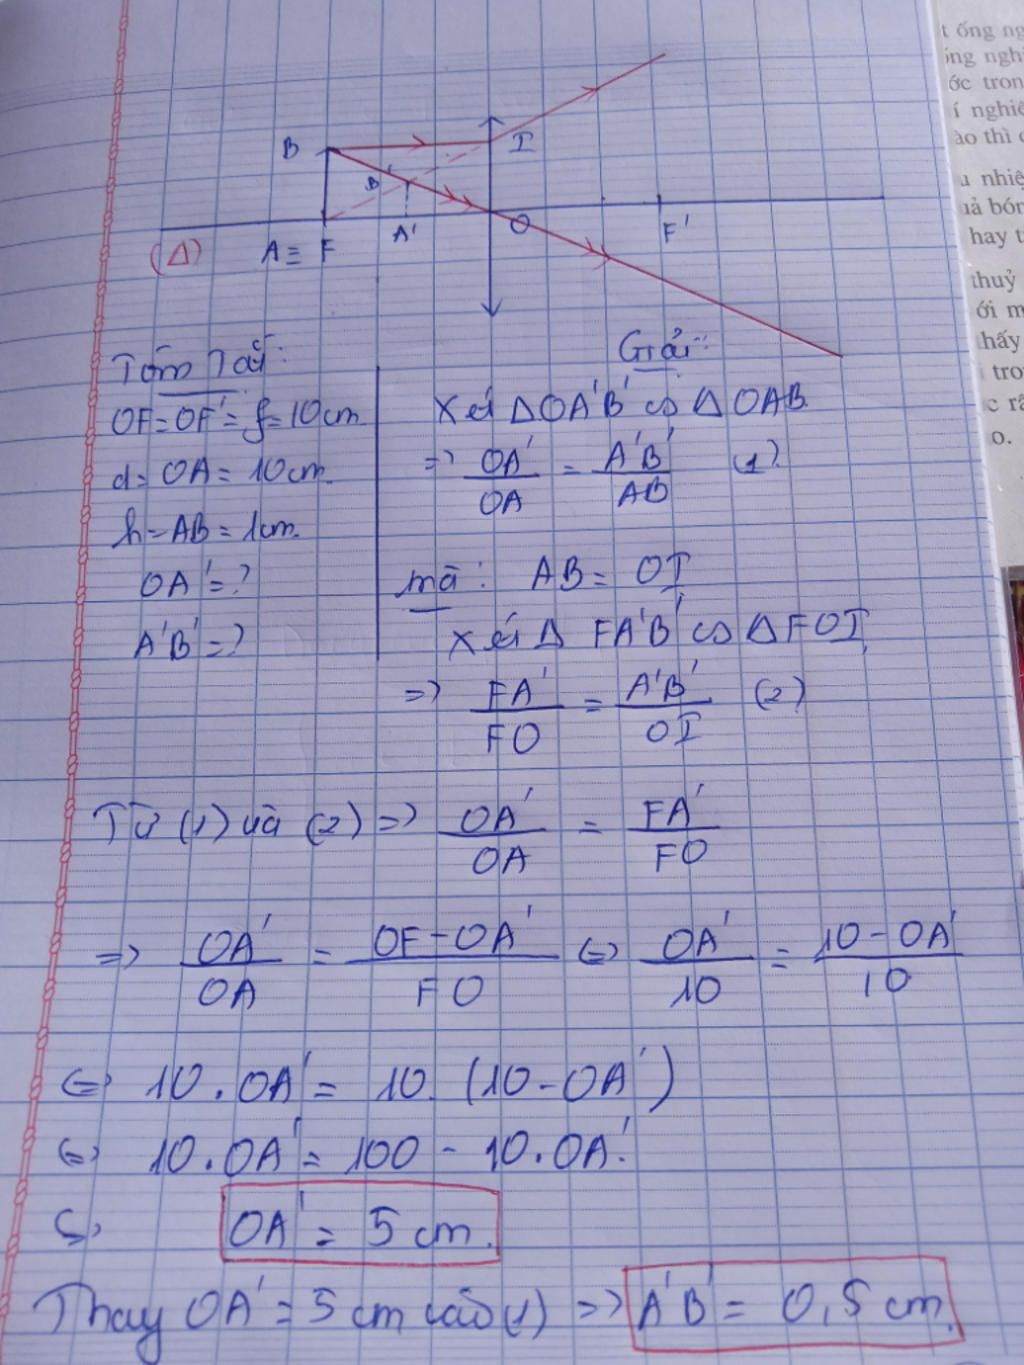 t ống ng
ống ngh
ớc tron
í nghiệ
ào thì c
u nhiệ
uả bón
hay t
thuỷ
ới m
thấy
tro
c rấ
o.
B
I
B'
O
F'
(Δ)
A ≡ F
A'
Tóm Tắt:
OF = OF' = f = 10cm.
d = OA = 10cm.
h = AB = 1cm.
OA' = ?
A'B' = ?
Giải:
Xét ΔOA'B' ∽ ΔOAB
=> OA'/OA = A'B'/AB (1).
mà: AB = OI
Xét Δ FA'B' ∽ ΔFOI
=> FA'/FO = A'B'/OI (2)
Từ (1) và (2) => OA'/OA = FA'/FO
=> OA'/OA = OF - OA'/FO <=> OA'/10 = 10 - OA'/10
<=> 10.OA' = 10.(10 - OA')
<=> 10.OA' = 100 - 10.OA'.
OA' = 5 cm.
Thay OA' = 5 cm vào (1) => A'B' = 0,5 cm.